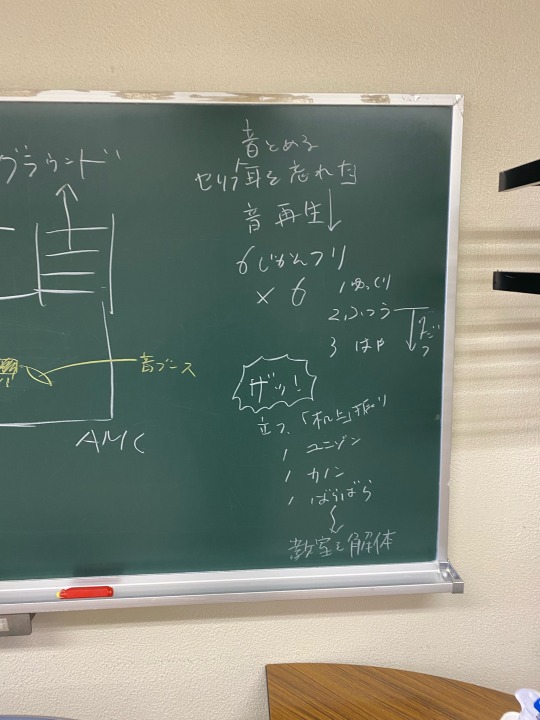 グラウンド
音ブース
AMC
音とめる
セリフ「耳を忘れた」
音再生
6じかんフリ
× 6
1 ゆっくり
2, ふつう
3 はや
ガッ!
立つ、「机上」振り
1 ユニゾン
1 カノン
1 ばらばら
教室を解体